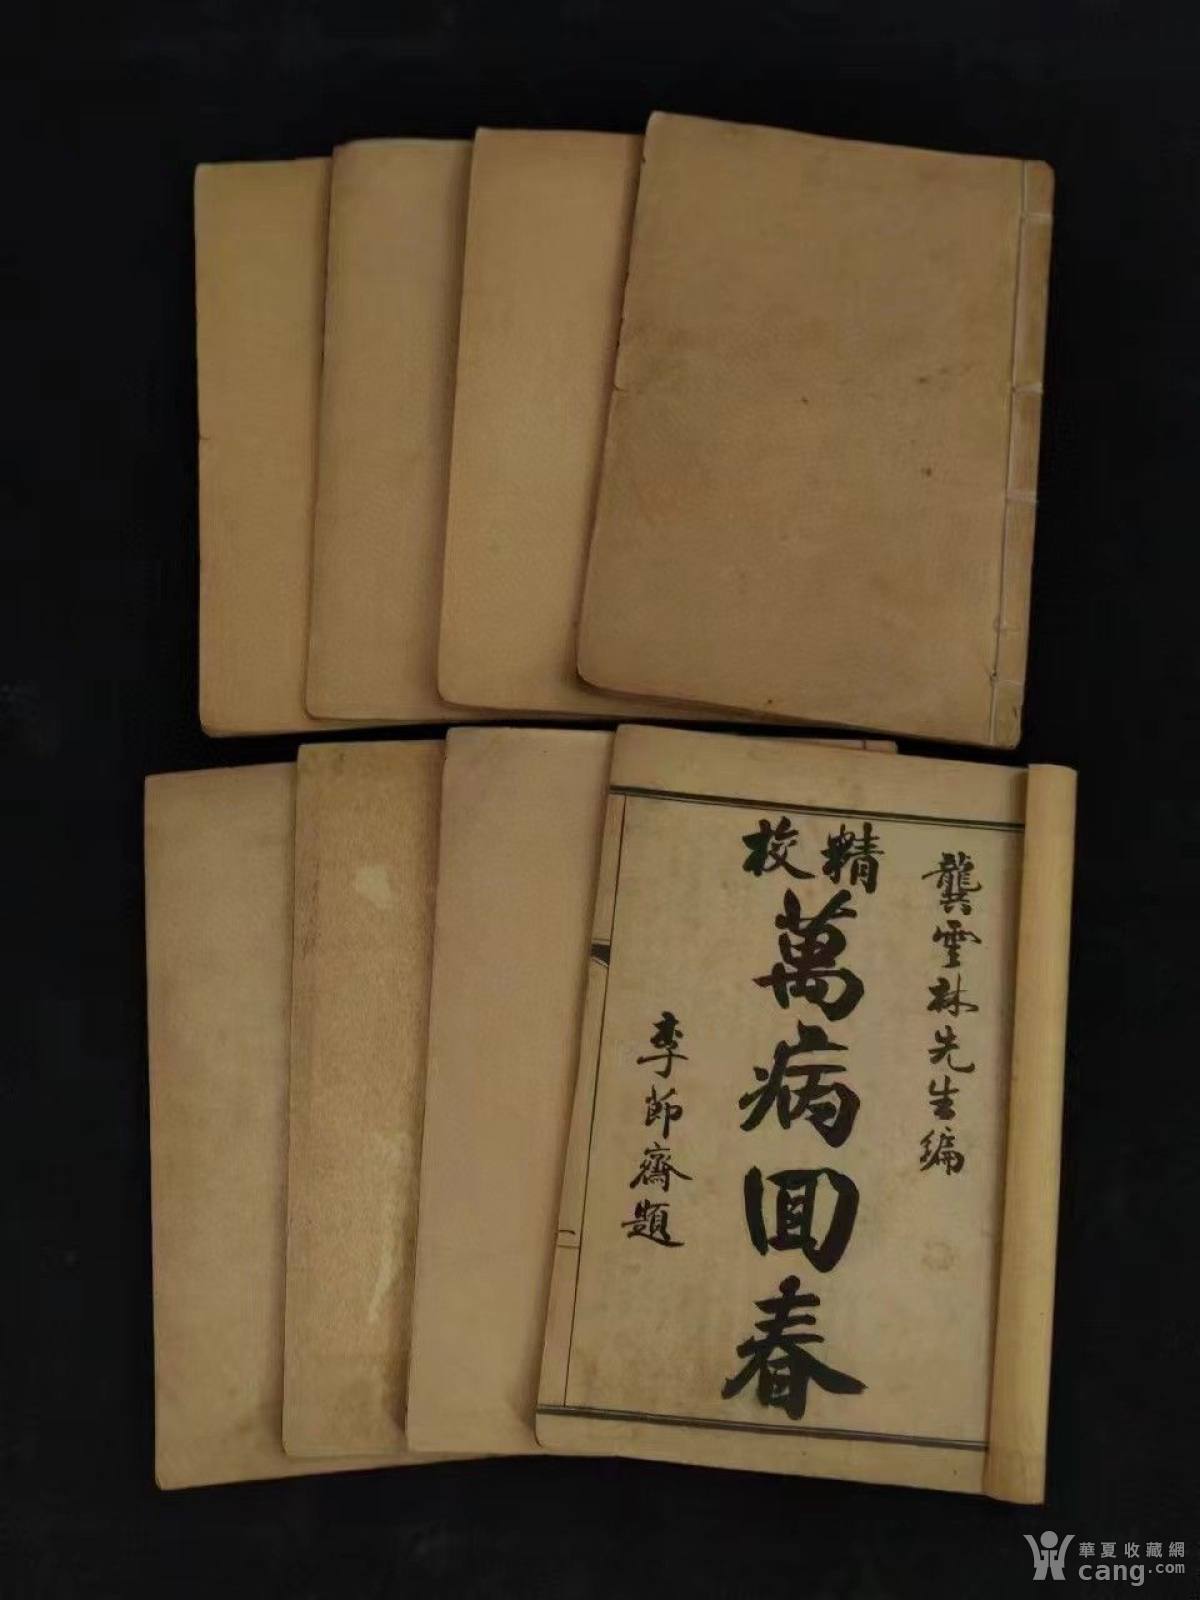 龔雲林先生編
精校
萬病回春
李節齋題
華夏收藏網
cang.com